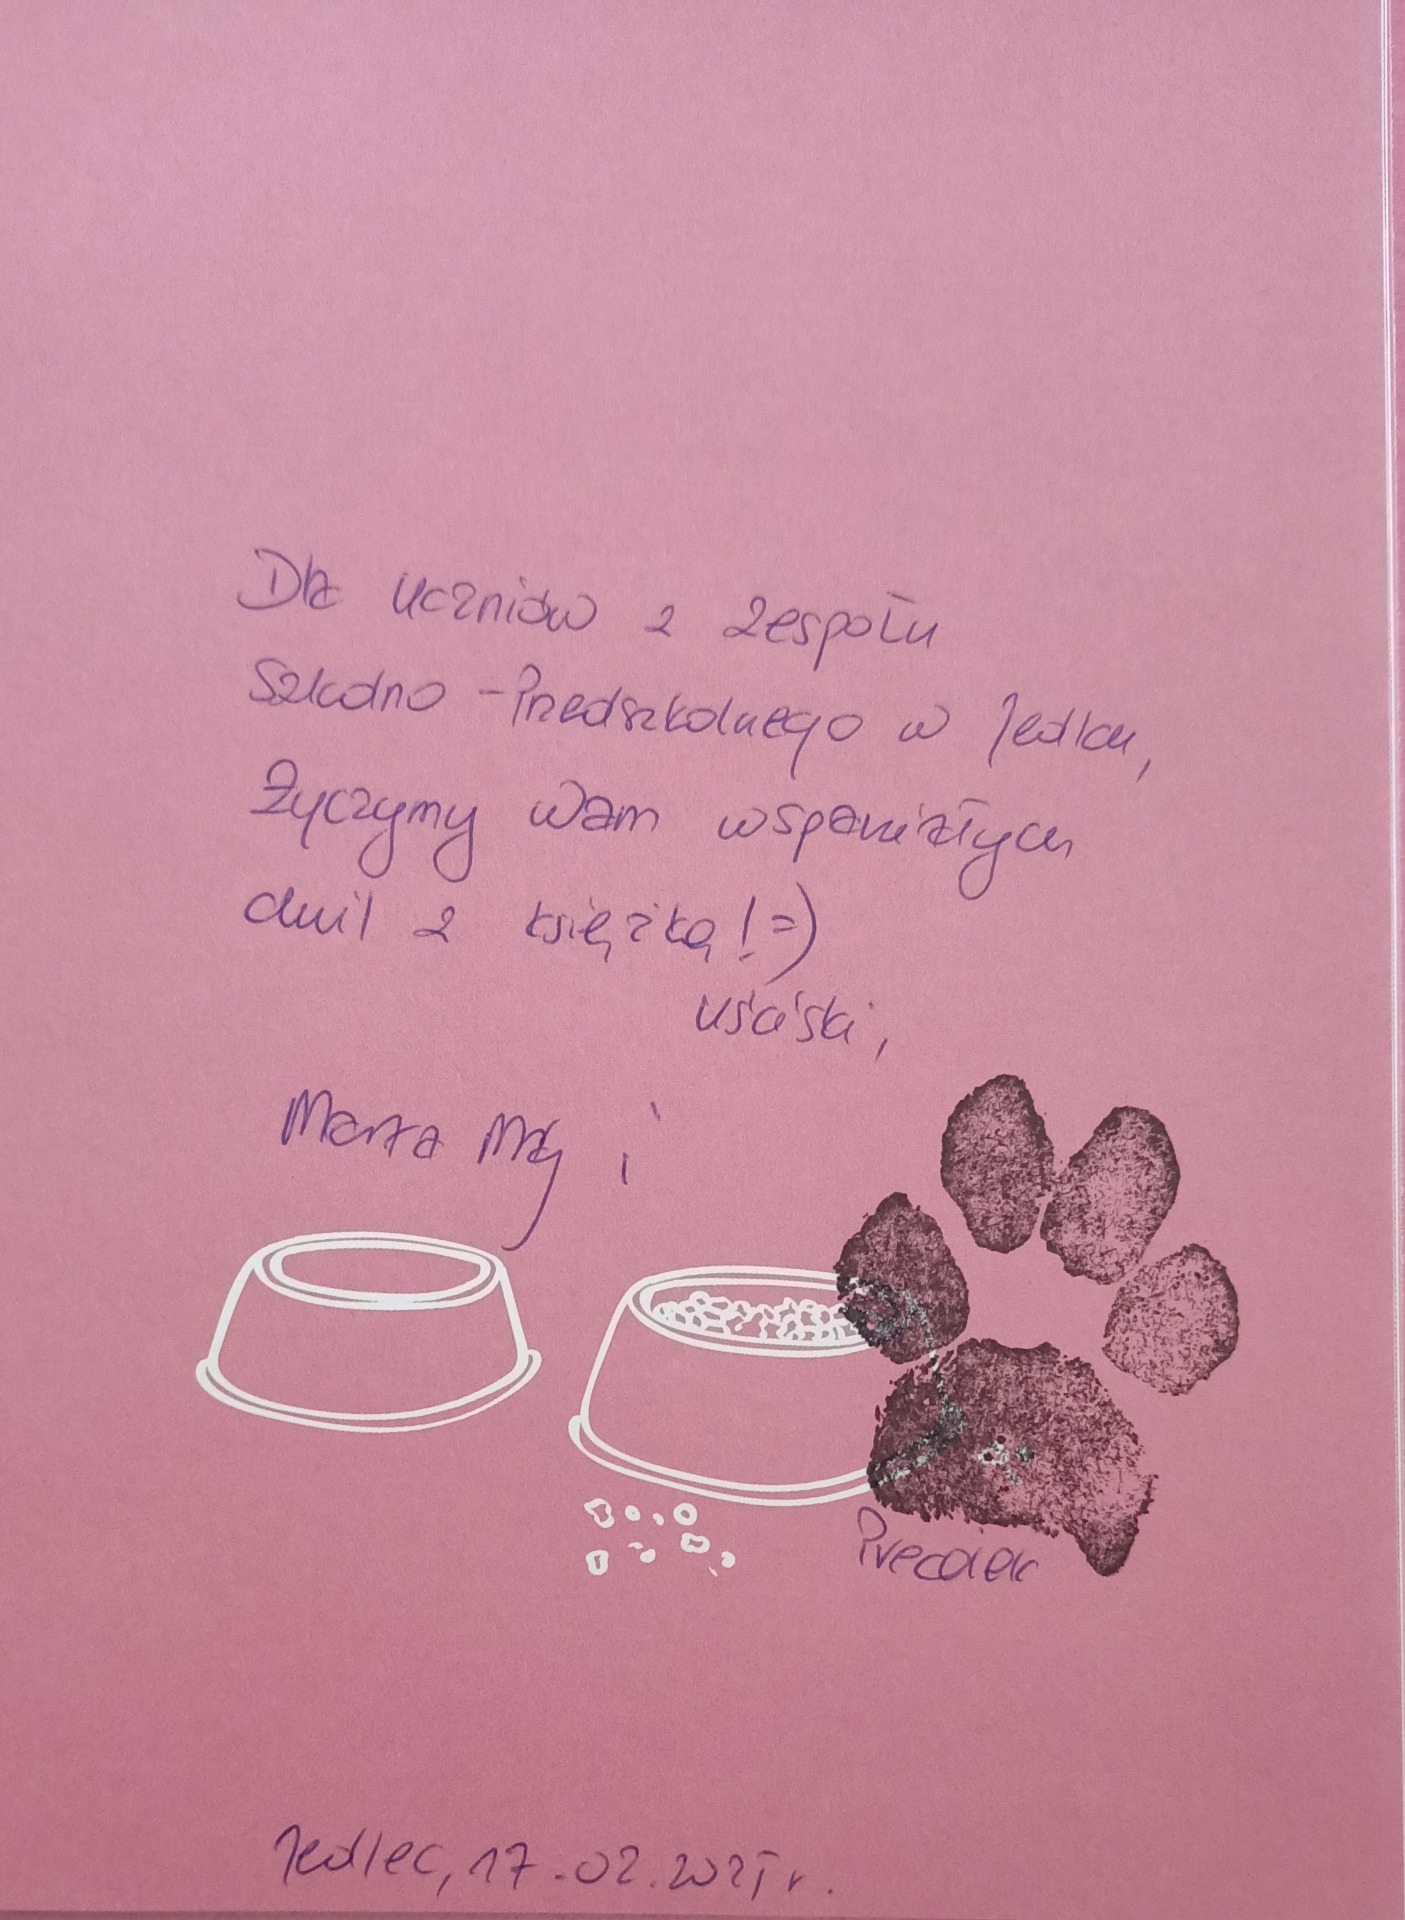 Dla uczniów z Zespołu
Szkolno - Przedszkolnego w Jedlcu,
Życzymy Wam wspaniałych
chwil z książką! =)
uściski,
Marta Maj i
Jedlec, 17.02.2025 r.